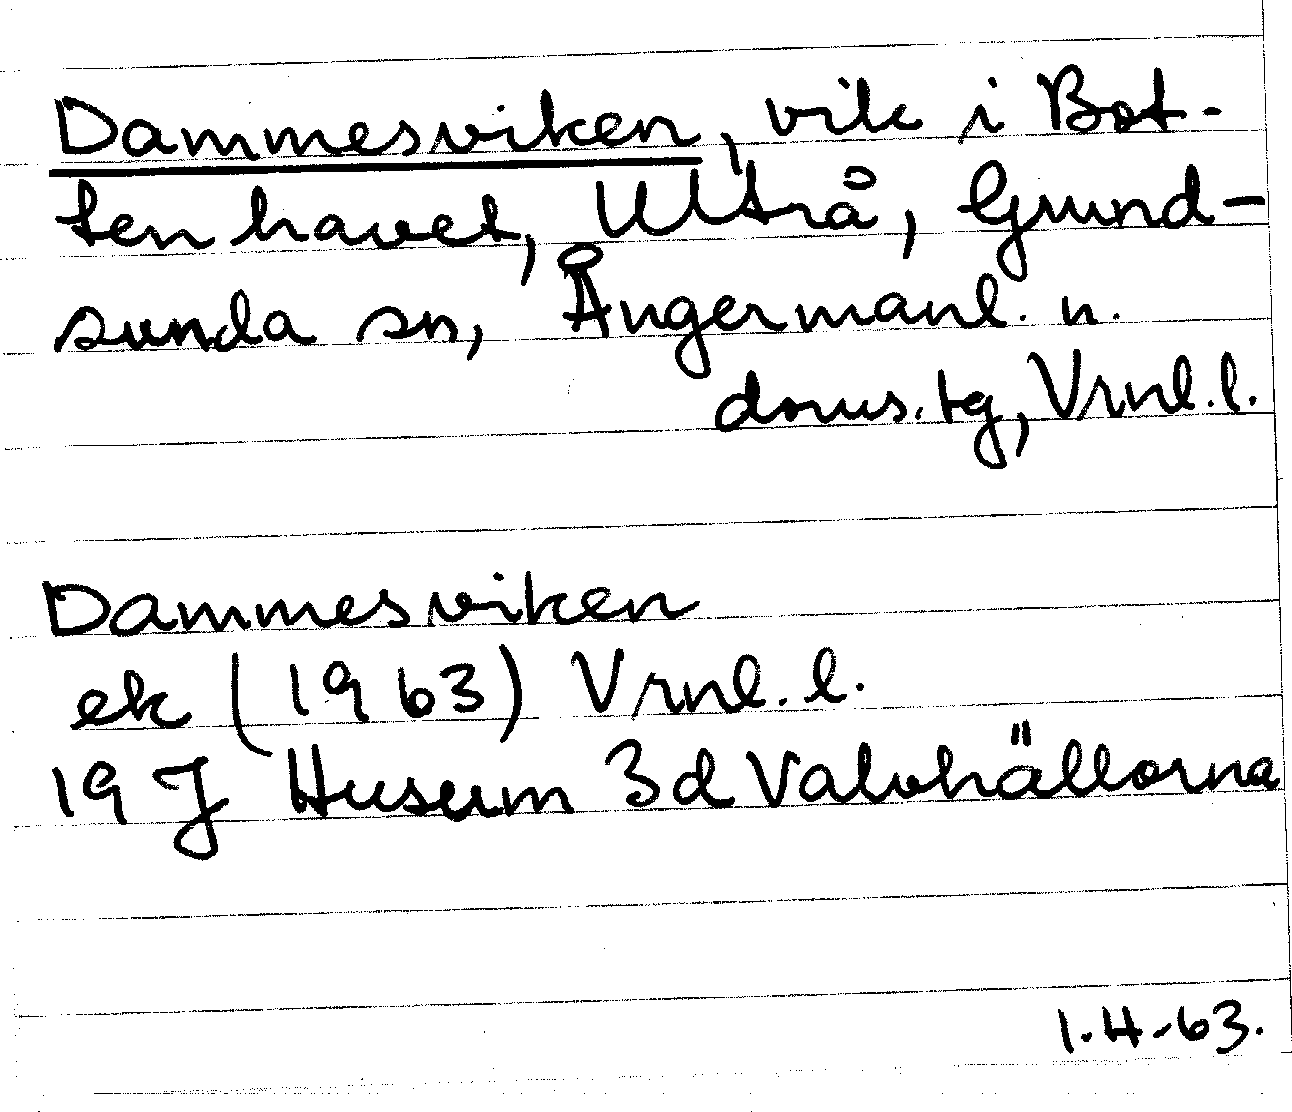 Dammesviken, vik i Bot-
tenhavet, Ultrå, Grund-
sunda sn, Ångermanl. n.
doms. tg, Vrnl. l.
Dammesviken
ek (1963) Vrnl. l.
19 J Husum 3d Valvhällorna
1.4.-63.